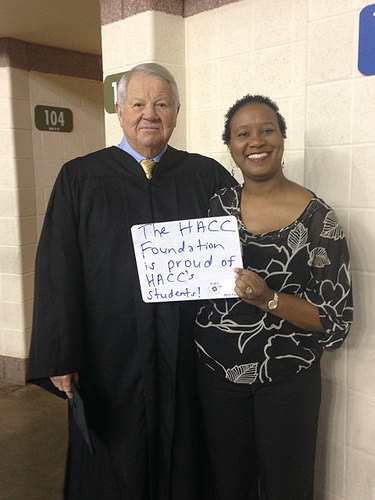 104
1
The HACC
Foundation
is proud of
HACC's
students!